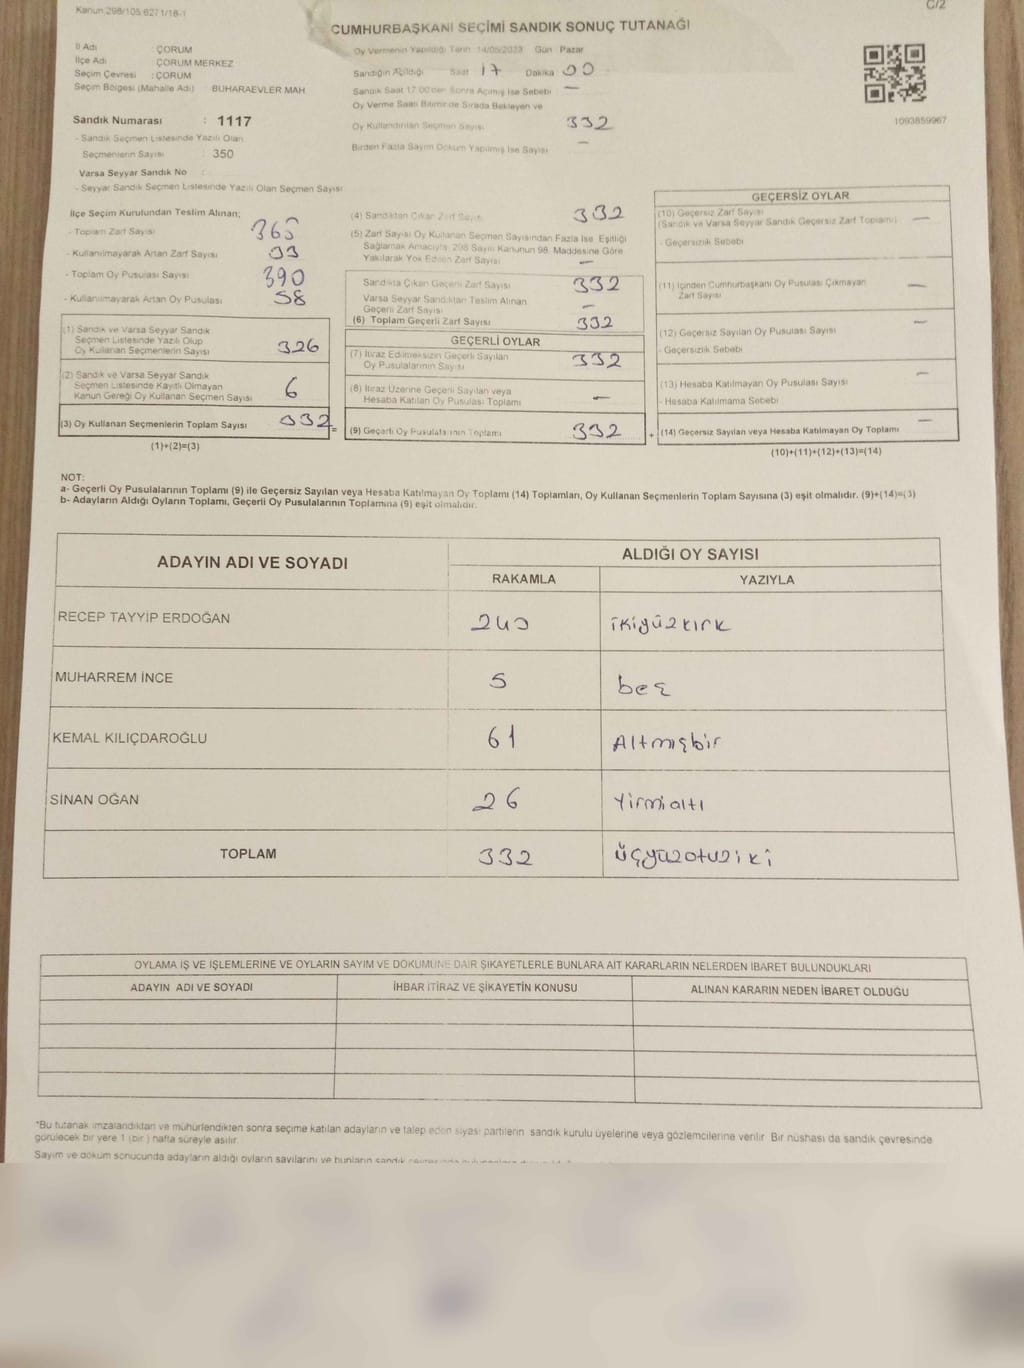 Kanun 298/105 6271/18-1
C/2
CUMHURBAŞKANI SEÇİMİ SANDIK SONUÇ TUTANAĞI
İl Adı ÇORUM
İlçe Adı ÇORUM MERKEZ
Seçim Çevresi : ÇORUM
Seçim Bölgesi (Mahalle Adı) : BUHARAEVLER MAH.
Sandık Numarası : 1117
- Sandık Seçmen Listesinde Yazılı Olan
Seçmenlerin Sayısı : 350
Varsa Seyyar Sandık No :
- Seyyar Sandık Seçmen Listesinde Yazılı Olan Seçmen Sayısı
Oy Vermenin Yapıldığı Tarih 14/05/2023 Gün Pazar
Sandığın Açıldığı Saat 17 Dakika 00
Sandık Saat 17.00'den Sonra Açılmış İse Sebebi —
Oy Verme Saati Bitiminde Sırada Bekleyen ve
Oy Kullandırılan Seçmen Sayısı 332
Birden Fazla Sayım Döküm Yapılmış İse Sayısı —
1093859967
İlçe Seçim Kurulundan Teslim Alınan;
- Toplam Zarf Sayısı 360
- Kullanılmayarak Artan Zarf Sayısı 33
- Toplam Oy Pusulası Sayısı 390
- Kullanılmayarak Artan Oy Pusulası 58
(1) Sandık ve Varsa Seyyar Sandık
Seçmen Listesinde Yazılı Olup
Oy Kullanan Seçmenlerin Sayısı 326
(2) Sandık ve Varsa Seyyar Sandık
Seçmen Listesinde Kayıtlı Olmayan
Kanun Gereği Oy Kullanan Seçmen Sayısı 6
(3) Oy Kullanan Seçmenlerin Toplam Sayısı 332
(1)+(2)=(3)
(4) Sandıktan Çıkan Zarf Sayısı 332
(5) Zarf Sayısı Oy Kullanan Seçmen Sayısından Fazla İse Eşitliği
Sağlamak Amacıyla, 298 Sayılı Kanunun 98. Maddesine Göre
Yakılarak Yok Edilen Zarf Sayısı —
Sandıkta Çıkan Geçerli Zarf Sayısı 332
Varsa Seyyar Sandıktan Teslim Alınan
Geçerli Zarf Sayısı —
(6) Toplam Geçerli Zarf Sayısı 332
GEÇERLİ OYLAR
(7) İtiraz Edilmeksizin Geçerli Sayılan
Oy Pusulalarının Sayısı 332
(8) İtiraz Üzerine Geçerli Sayılan veya
Hesaba Katılan Oy Pusulası Toplamı —
= (9) Geçerli Oy Pusulalarının Toplamı 332
GEÇERSİZ OYLAR
(10) Geçersiz Zarf Sayısı
(Sandık ve Varsa Seyyar Sandık Geçersiz Zarf Toplamı) —
- Geçersizlik Sebebi
(11) İçinden Cumhurbaşkanı Oy Pusulası Çıkmayan
Zarf Sayısı —
(12) Geçersiz Sayılan Oy Pusulası Sayısı —
- Geçersizlik Sebebi
(13) Hesaba Katılmayan Oy Pusulası Sayısı —
- Hesaba Katılmama Sebebi
+ (14) Geçersiz Sayılan veya Hesaba Katılmayan Oy Toplamı —
(10)+(11)+(12)+(13)=(14)
NOT:
a- Geçerli Oy Pusulalarının Toplamı (9) ile Geçersiz Sayılan veya Hesaba Katılmayan Oy Toplamı (14) Toplamları, Oy Kullanan Seçmenlerin Toplam Sayısına (3) eşit olmalıdır. (9)+(14)=(3)
b- Adayların Aldığı Oyların Toplamı, Geçerli Oy Pusulalarının Toplamına (9) eşit olmalıdır.
ADAYIN ADI VE SOYADI ALDIĞI OY SAYISI
RAKAMLA YAZIYLA
RECEP TAYYİP ERDOĞAN 240 ikiyüzkırk
MUHARREM İNCE 5 beş
KEMAL KILIÇDAROĞLU 61 Altmışbir
SİNAN OĞAN 26 Yirmialtı
TOPLAM 332 üçyüzotuziki
OYLAMA İŞ VE İŞLEMLERİNE VE OYLARIN SAYIM VE DÖKÜMÜNE DAİR ŞİKAYETLERLE BUNLARA AİT KARARLARIN NELERDEN İBARET BULUNDUKLARI
ADAYIN ADI VE SOYADI İHBAR İTİRAZ VE ŞİKAYETİN KONUSU ALINAN KARARIN NEDEN İBARET OLDUĞU
*Bu tutanak imzalandıktan ve mühürlendikten sonra seçime katılan adayların ve talep eden siyasi partilerin sandık kurulu üyelerine veya gözlemcilerine verilir. Bir nüshası da sandık çevresinde
görülecek bir yere 1 (bir) hafta süreyle asılır.
Sayım ve döküm sonucunda adayların aldığı oyların sayılarını ve bunların sandık